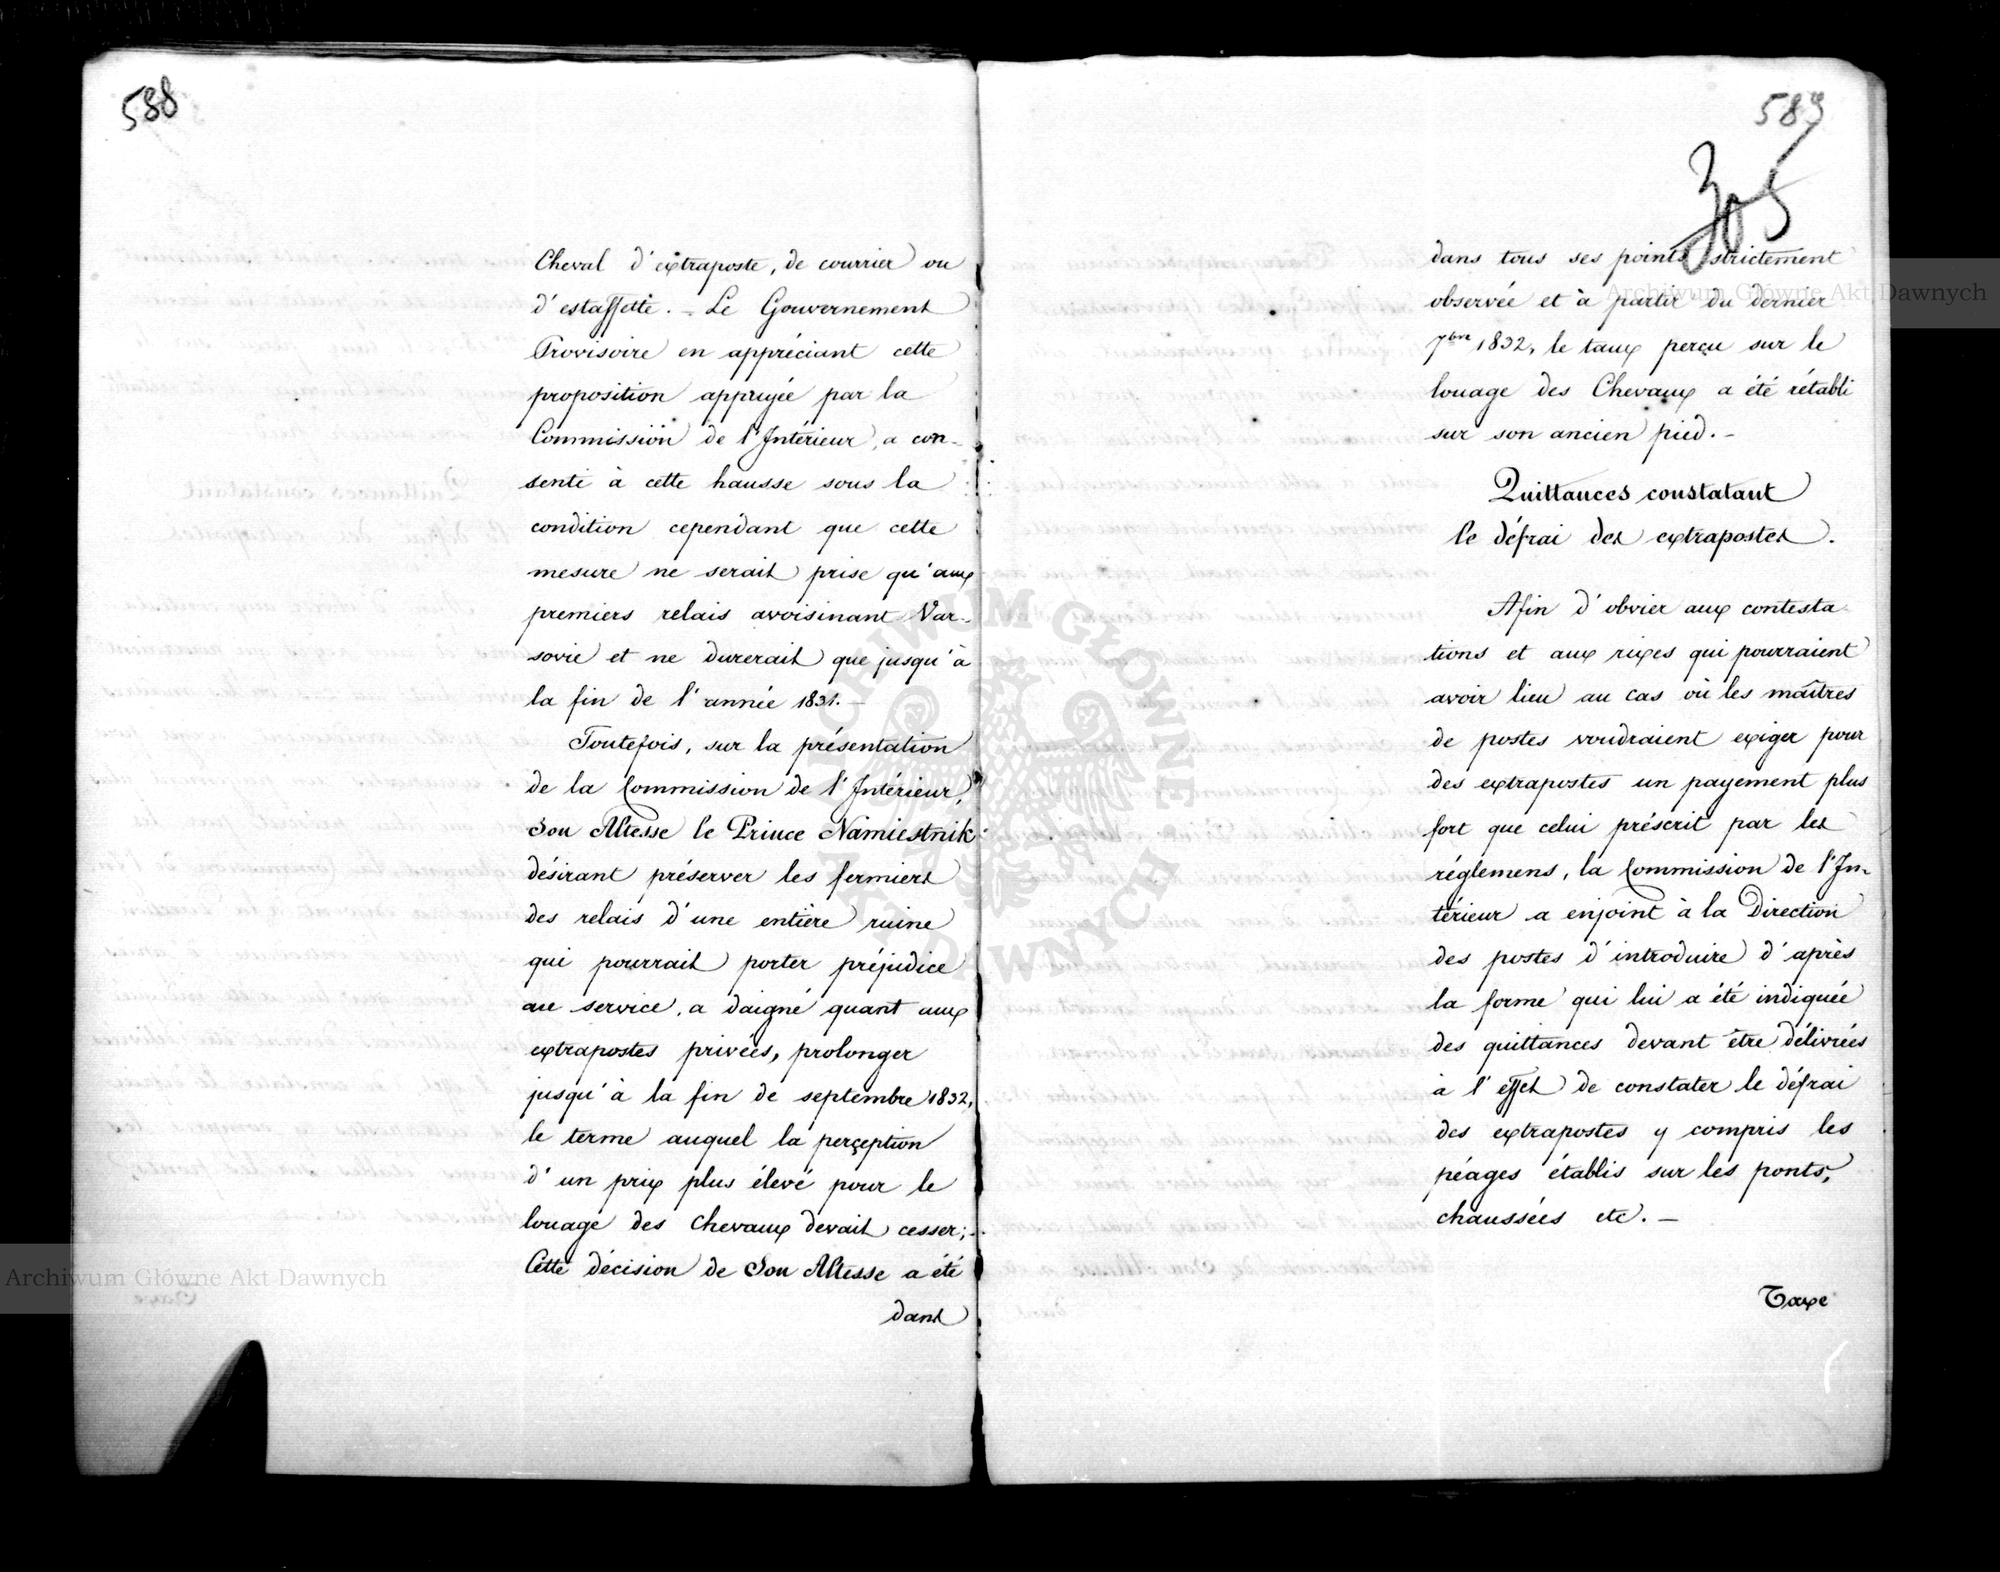 588
Cheval d'extraposte, de courrier ou
d'estaffette. - Le Gouvernement
Provisoire en appréciant cette
proposition appuyée par la
Commission de l'Intérieur, a con-
senti à cette hausse sous la
condition cependant que cette
mesure ne serait prise qu'aux
premiers relais avoisinant Var-
sovie et ne durerait que jusqu'à
la fin de l'année 1831. -
Toutefois, sur la présentation
de la Commission de l'Intérieur,
Son Altesse le Prince Namiestnik
désirant préserver les fermiers
des relais d'une entière ruine
qui pourrait porter préjudice
au service, a daigné quant aux
extrapostes privées, prolonger
jusqu'à la fin de septembre 1832,
le terme auquel la perçeption
d'un prix plus élevé pour le
louage des chevaux devait cesser; -
Cette décision de Son Altesse a été
dans
589
305
dans tous ses points strictement
observée et à partir du dernier
7bre 1832, le taux perçu sur le
louage des Chevaux a été rétabli
sur son ancien pied. -
Quittances constatant
le défrai des extrapostes.
Afin d'obvier aux contesta-
tions et aux rixes qui pourraient
avoir lieu au cas où les maîtres
de postes voudraient exiger pour
des extrapostes un payement plus
fort que celui préscrit par les
réglemens, la Commission de l'In-
térieur a enjoint à la Direction
des postes d'introduire d'après
la forme qui lui a été indiquée
des quittances devant être délivrées
à l'effet de constater le défrai
des extrapostes y compris les
péages établis sur les ponts,
chaussées etc. -
Taxe
Archiwum Główne Akt Dawnych
Archiwum Główne Akt Dawnych
ARCHIWUM GŁÓWNE • AKT DAWNYCH •